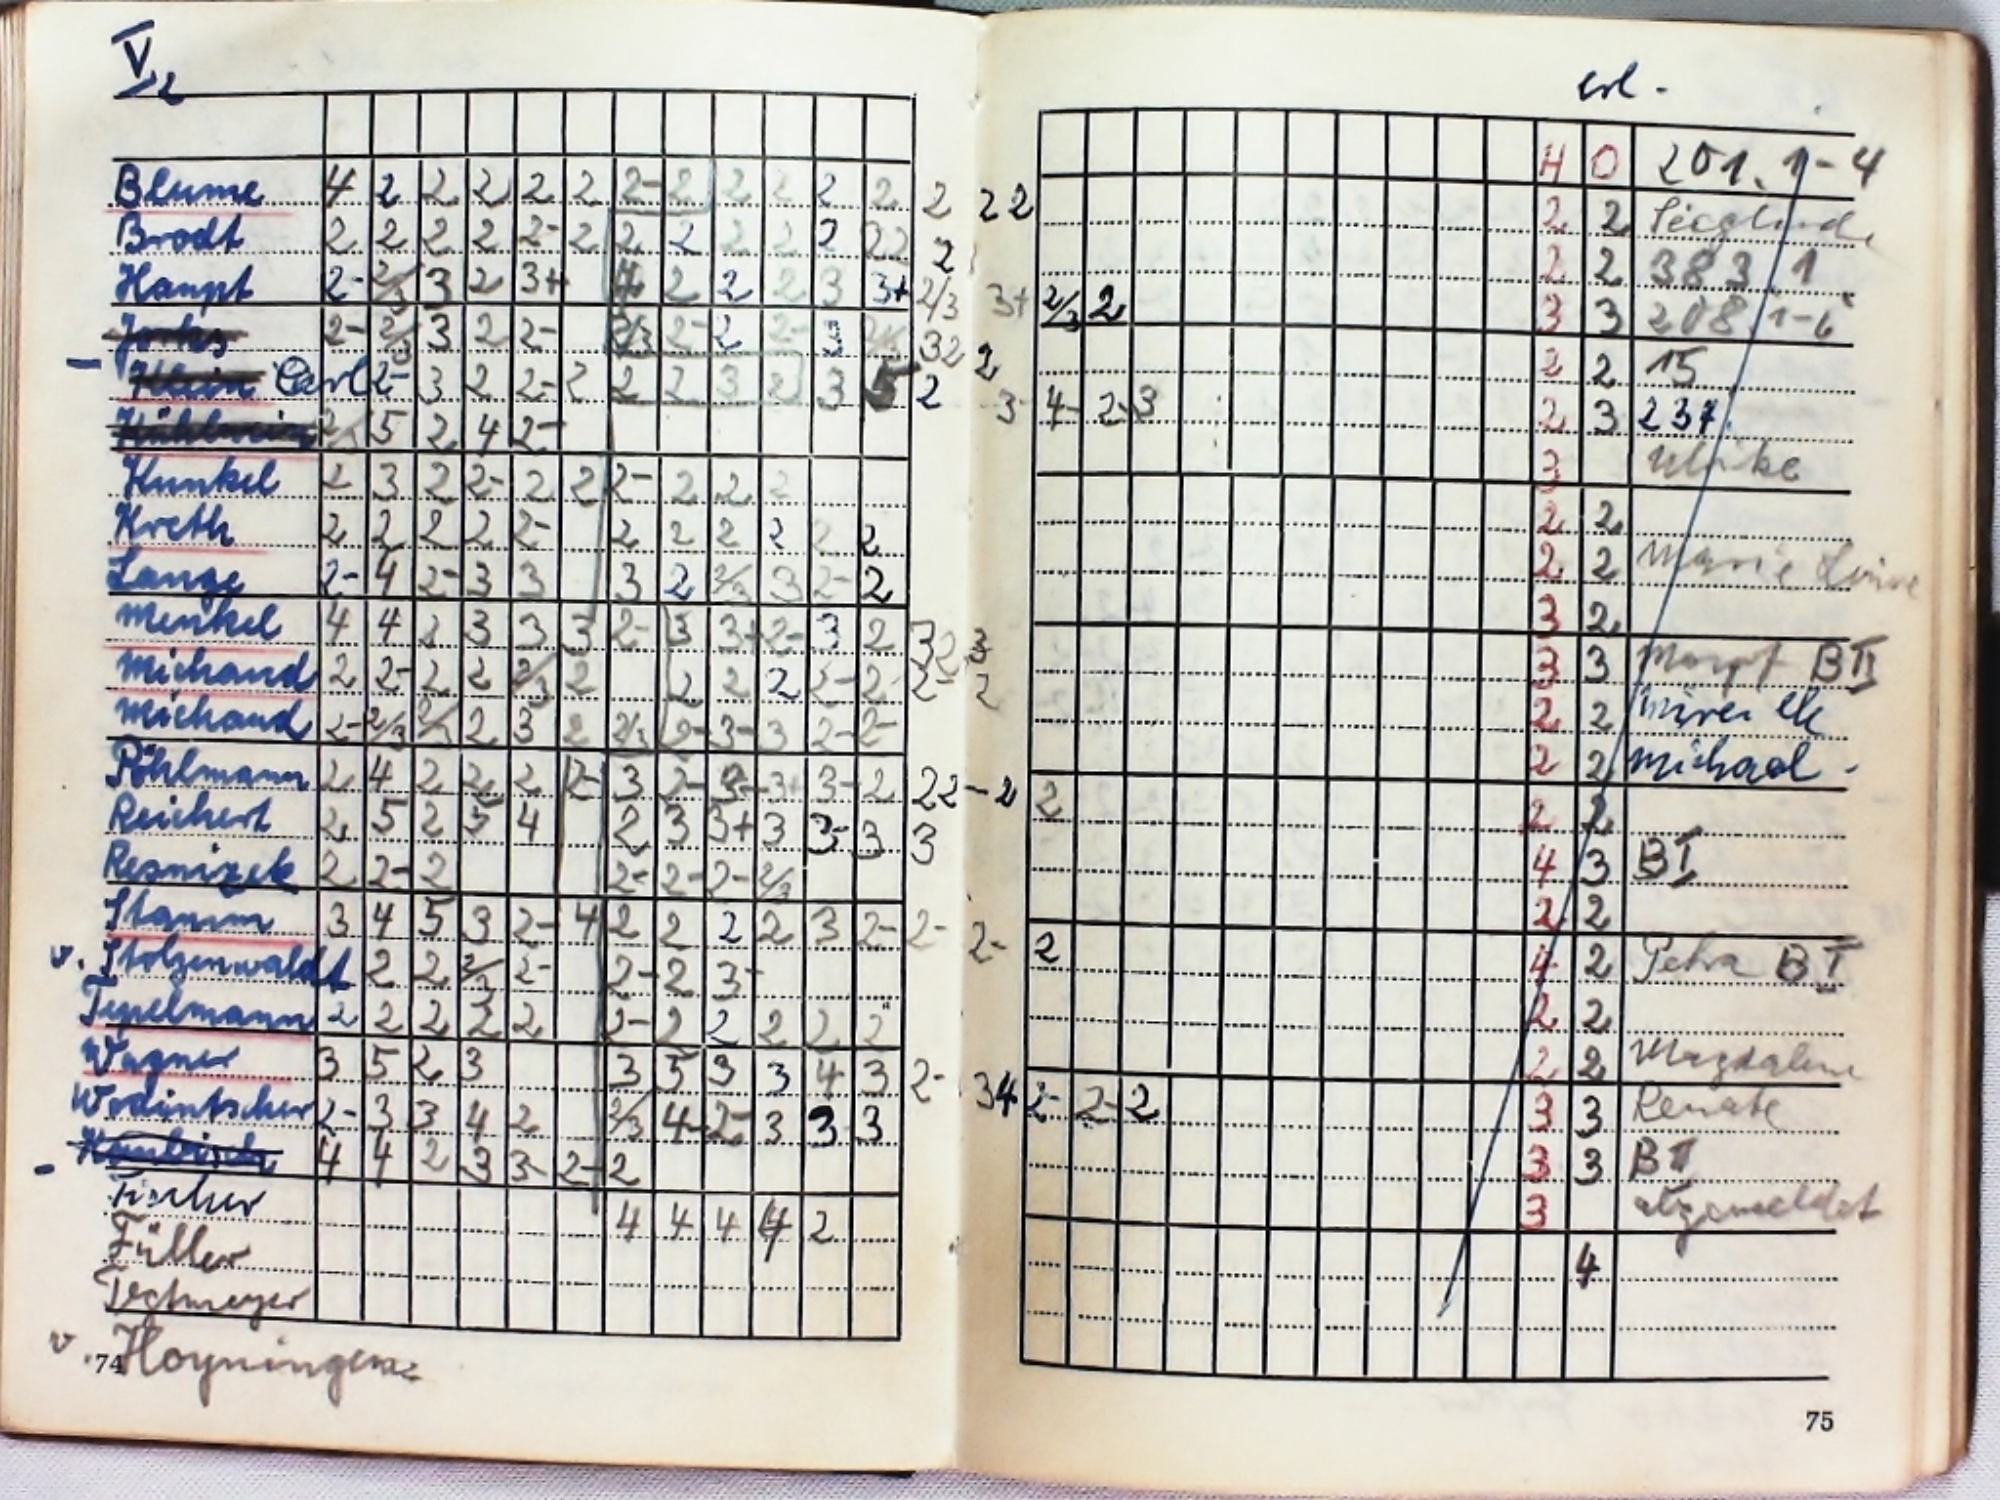 V e
Blume 4 2 2 2 2 2 2- 2 2 2 2 2 2 2 2
Brodt 2 2 2 2 2- 2 2 2 2 2 2 2 2 2
Haupt 2- 2/3 3 2 3+ 4 2 2 2 3 3+ 2/3 3+ 2/3 2
2- 2/3 3 2 2- 2/3 2- 2 2- 3 2 2
Klein Carl 2- 3 2 2- 2 2 2 3 2 3 5 2 3- 4- 2-3
5 2 4 2-
Kunkel 2 3 2 2- 2 2 2- 2 2 2
Kreth 2 2 2 2 2- 2 2 2 2 2 2
Lange 2- 4 2- 3 3 3 2 2/3 3 2- 2
Menkel 4 4 2 3 3 3 2- 3 3+ 2- 3 2 3 2 3
Michaud 2 2- 2 2 2/3 2 2 2 2 2- 2- 2- 2
Michaud 2- 2/3 2/3 2 3 2 2/3 2- 3- 3 2- 2-
Pöhlmann 2 4 2 2 2 2- 3 2- 3- 3+ 3- 2 2 2 - 2 2
Reichert 2 5 2 5 4 2 3 3+ 3 3- 3 3
Resnizek 2 2- 2 2- 2- 2- 2/3
Stamm 3 4 5 3 2- 4 2 2 2 2 3 2- 2- 2- 2
v. Stolzenwaldt 2 2 2/3 2- 2- 2 3-
Tepelmann 2 2 2 2 2 2- 2 2 2 2 2
Wagner 3 5 2 3 3 5 3 3 4 3 2- 3 4 2- 2-2
Wodintscher 2- 3 3 4 2 2/3 4- 2- 3 3 3
4 4 2 3 3- 2- 2
Fischer
4 4 4 4 2
Füller
Tegtmeyer
v. Hoyningen
74
erl.
H O 201. 1-4
2 2 Sieglinde
2 2 383. 1
3 3 208. 1-6
2 2 15
2 3 237.
3 Ulrike
2 2
2 2 Marie Luise
3 2
3 3 BII
2 2 Mireille
2 2 Michael -
2 2
4 3 BI
2 2
4 2 Petra BI
2 2
2 2 Magdalene
3 3 Renate
3 3 BI
3 abgemeldet
4
75